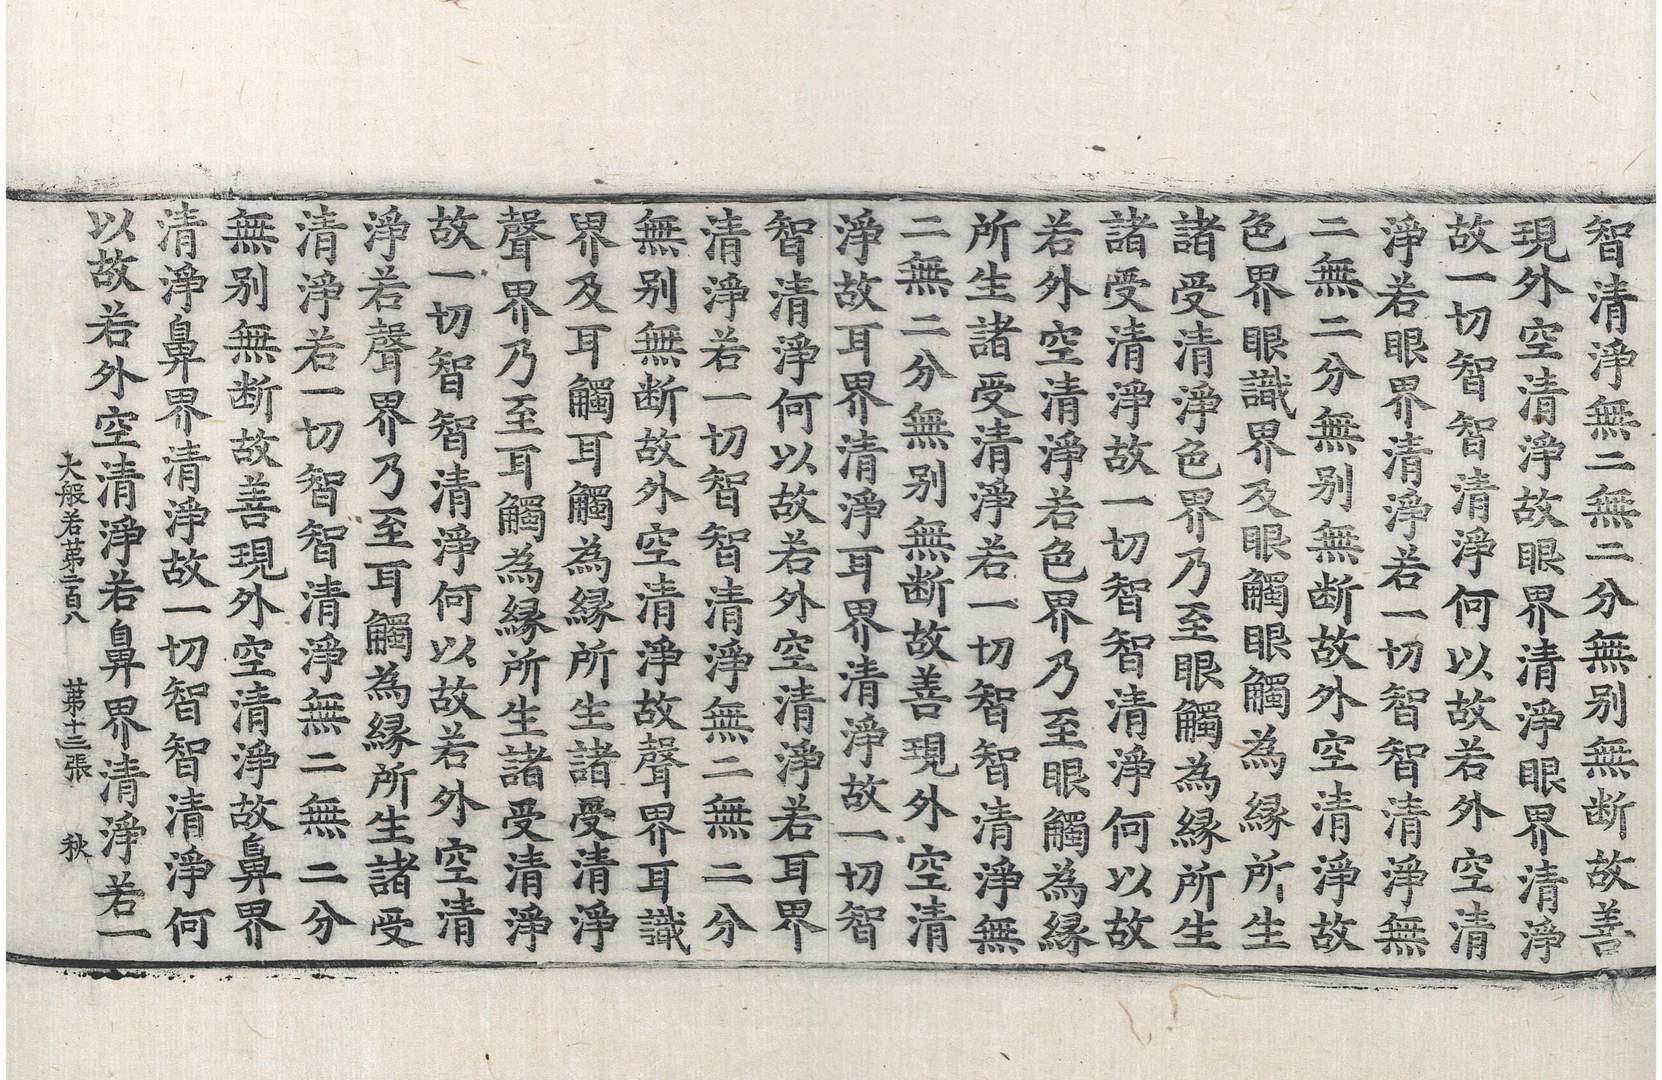 智清淨無二無二分無别無断故善
現外空清淨故眼界清淨眼界清淨
故一切智智清淨何以故若外空清
淨若眼界清淨若一切智智清淨無
二無二分無别無断故外空清淨故
色界眼識界及眼觸眼觸為縁所生
諸受清淨色界乃至眼觸為縁所生
諸受清淨故一切智智清淨何以故
若外空清淨若色界乃至眼觸為縁
所生諸受清淨若一切智智清淨無
二無二分無别無断故善現外空清
淨故耳界清淨耳界清淨故一切智
智清淨何以故若外空清淨若耳界
清淨若一切智智清淨無二無二分
無别無断故外空清淨故聲界耳識
界及耳觸耳觸為縁所生諸受清淨
聲界乃至耳觸為縁所生諸受清淨
故一切智智清淨何以故若外空清
淨若聲界乃至耳觸為縁所生諸受
清淨若一切智智清淨無二無二分
無别無断故善現外空清淨故鼻界
清淨鼻界清淨故一切智智清淨何
以故若外空清淨若鼻界清淨若一
大般若第二百八 第十三張 秋